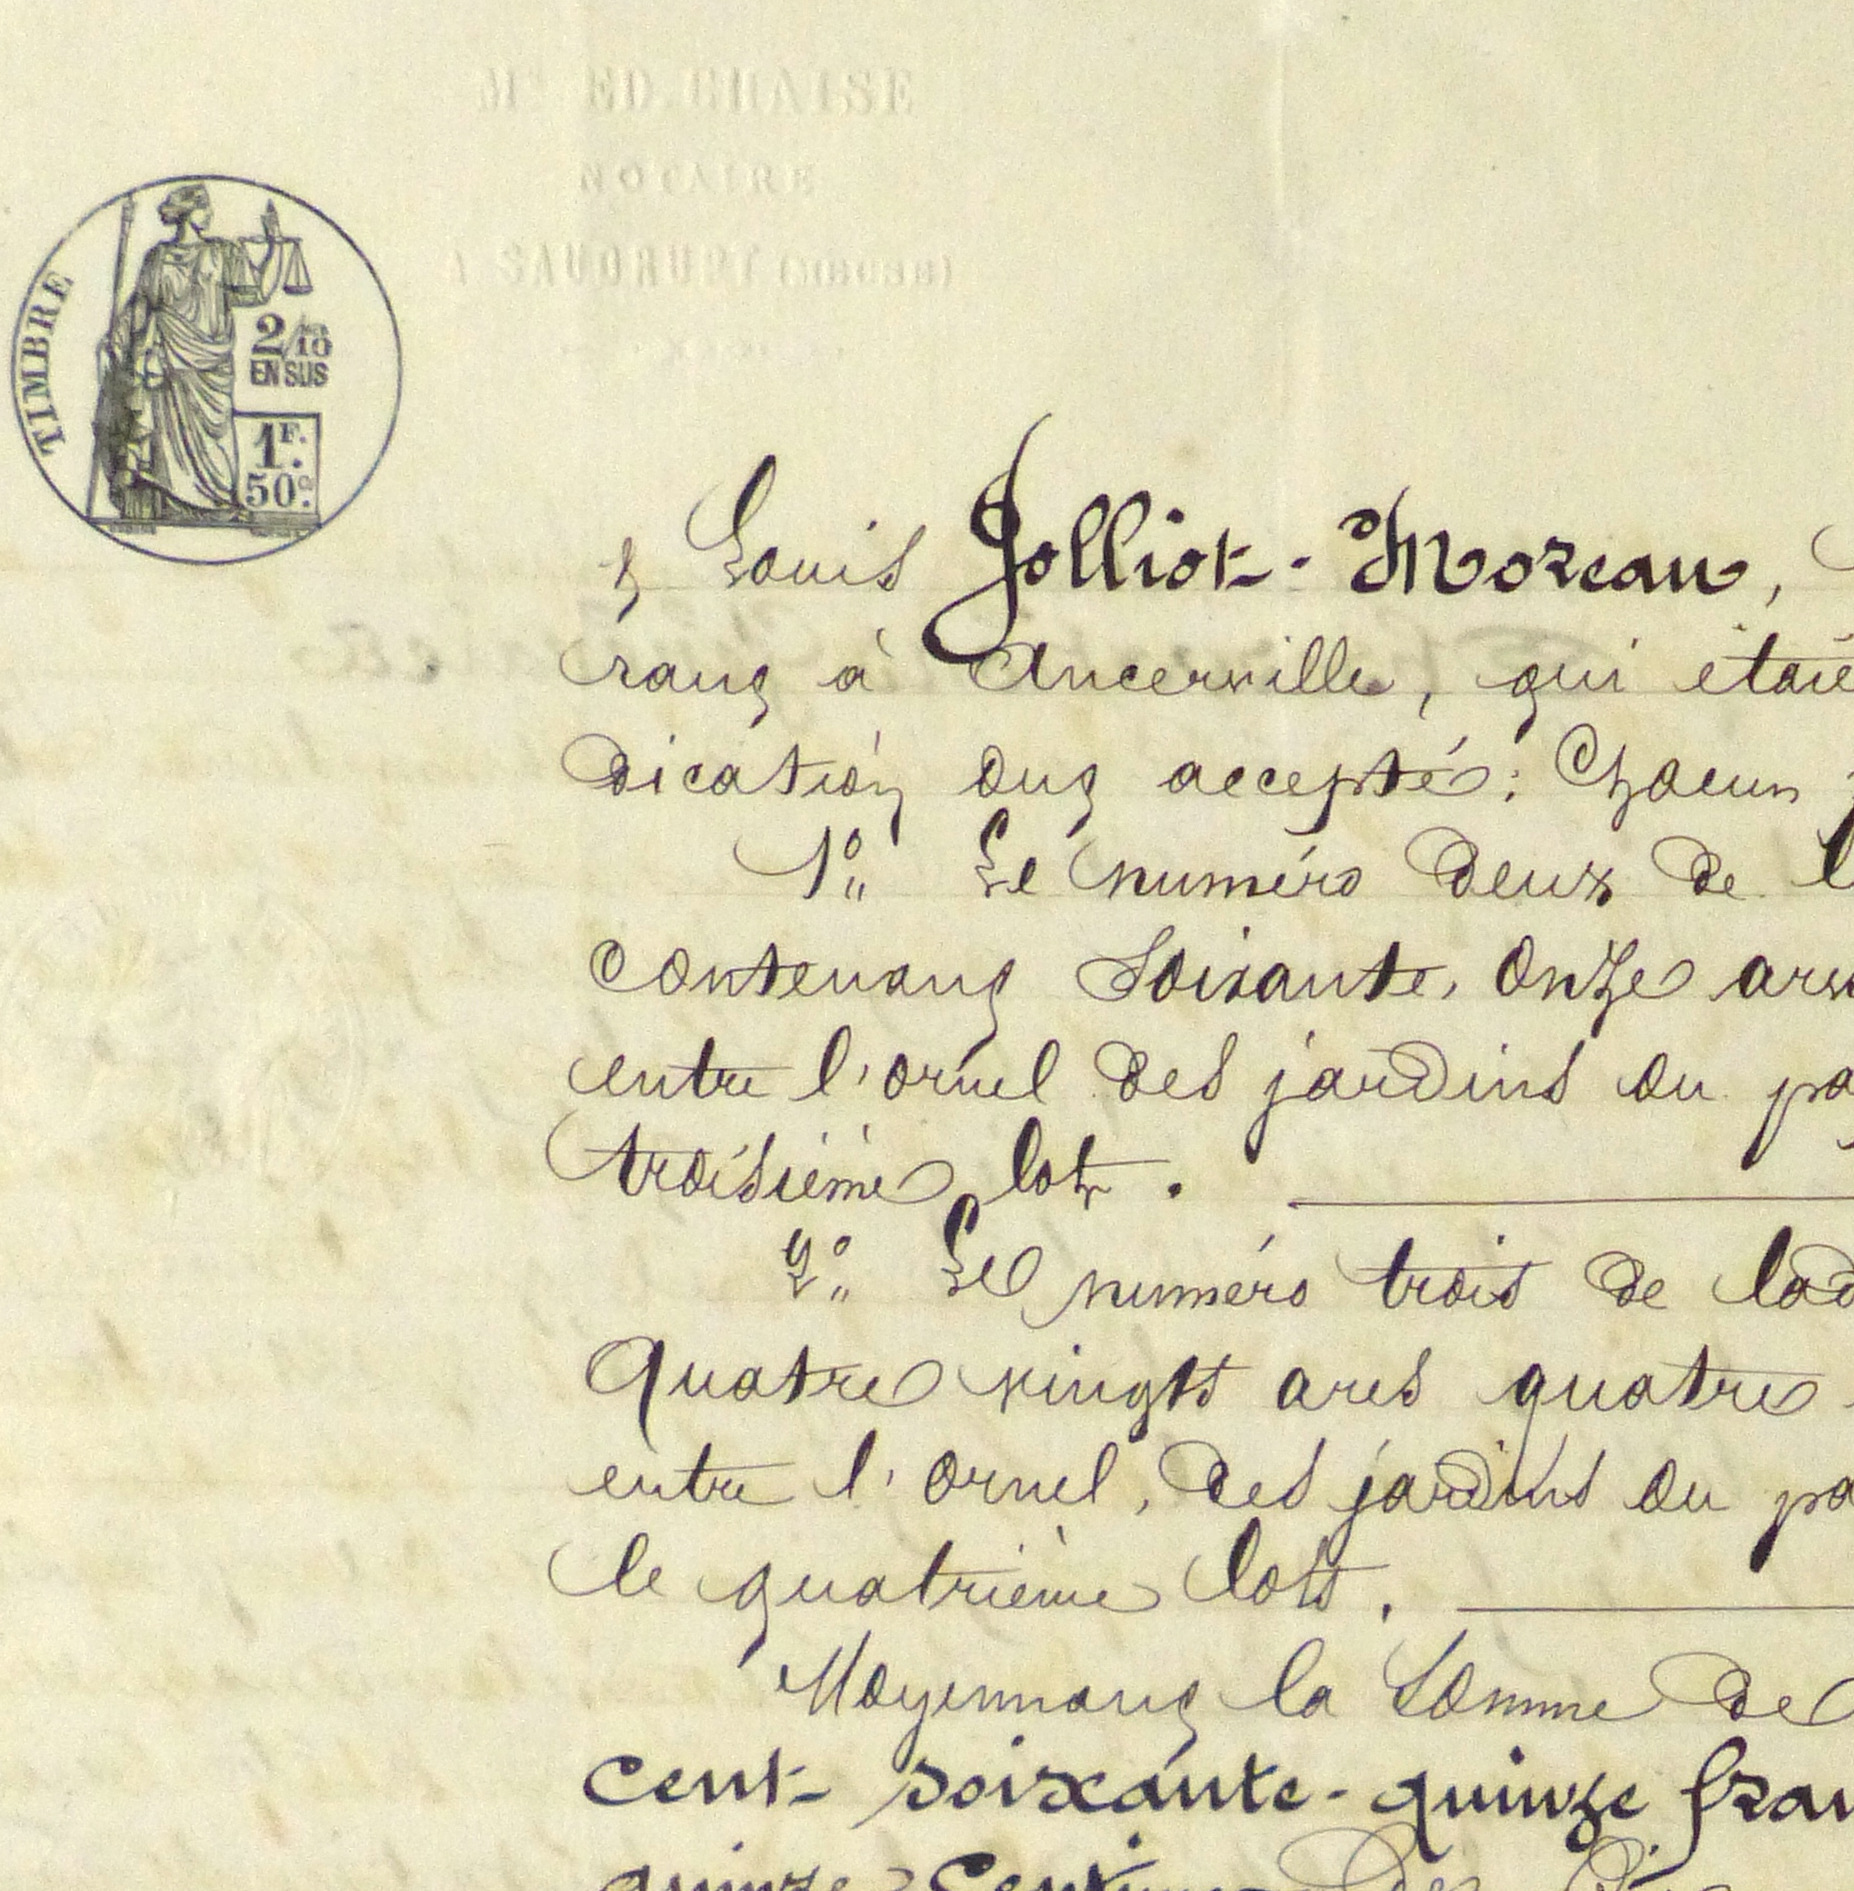 Me ED. CHAISE
NOTAIRE
A SAUDRUPT (MEUSE)
TIMBRE
2/10
EN SUS
1F.
50c.
& Louis Jolliot-Moreau,
rant à Ancerville, qui
dication ont accepté : Chacun
1° Le numéro deux de
contenant Soixante, Onze
entre l'ornel des jardins du
troisième lot.
2° Le numéro trois de
Quatre vingts ares quatre
entre l'ornel, des jardins du
le quatrième lots.
Moyennant la Somme de
cent soixante-quinze
quinze Centimes